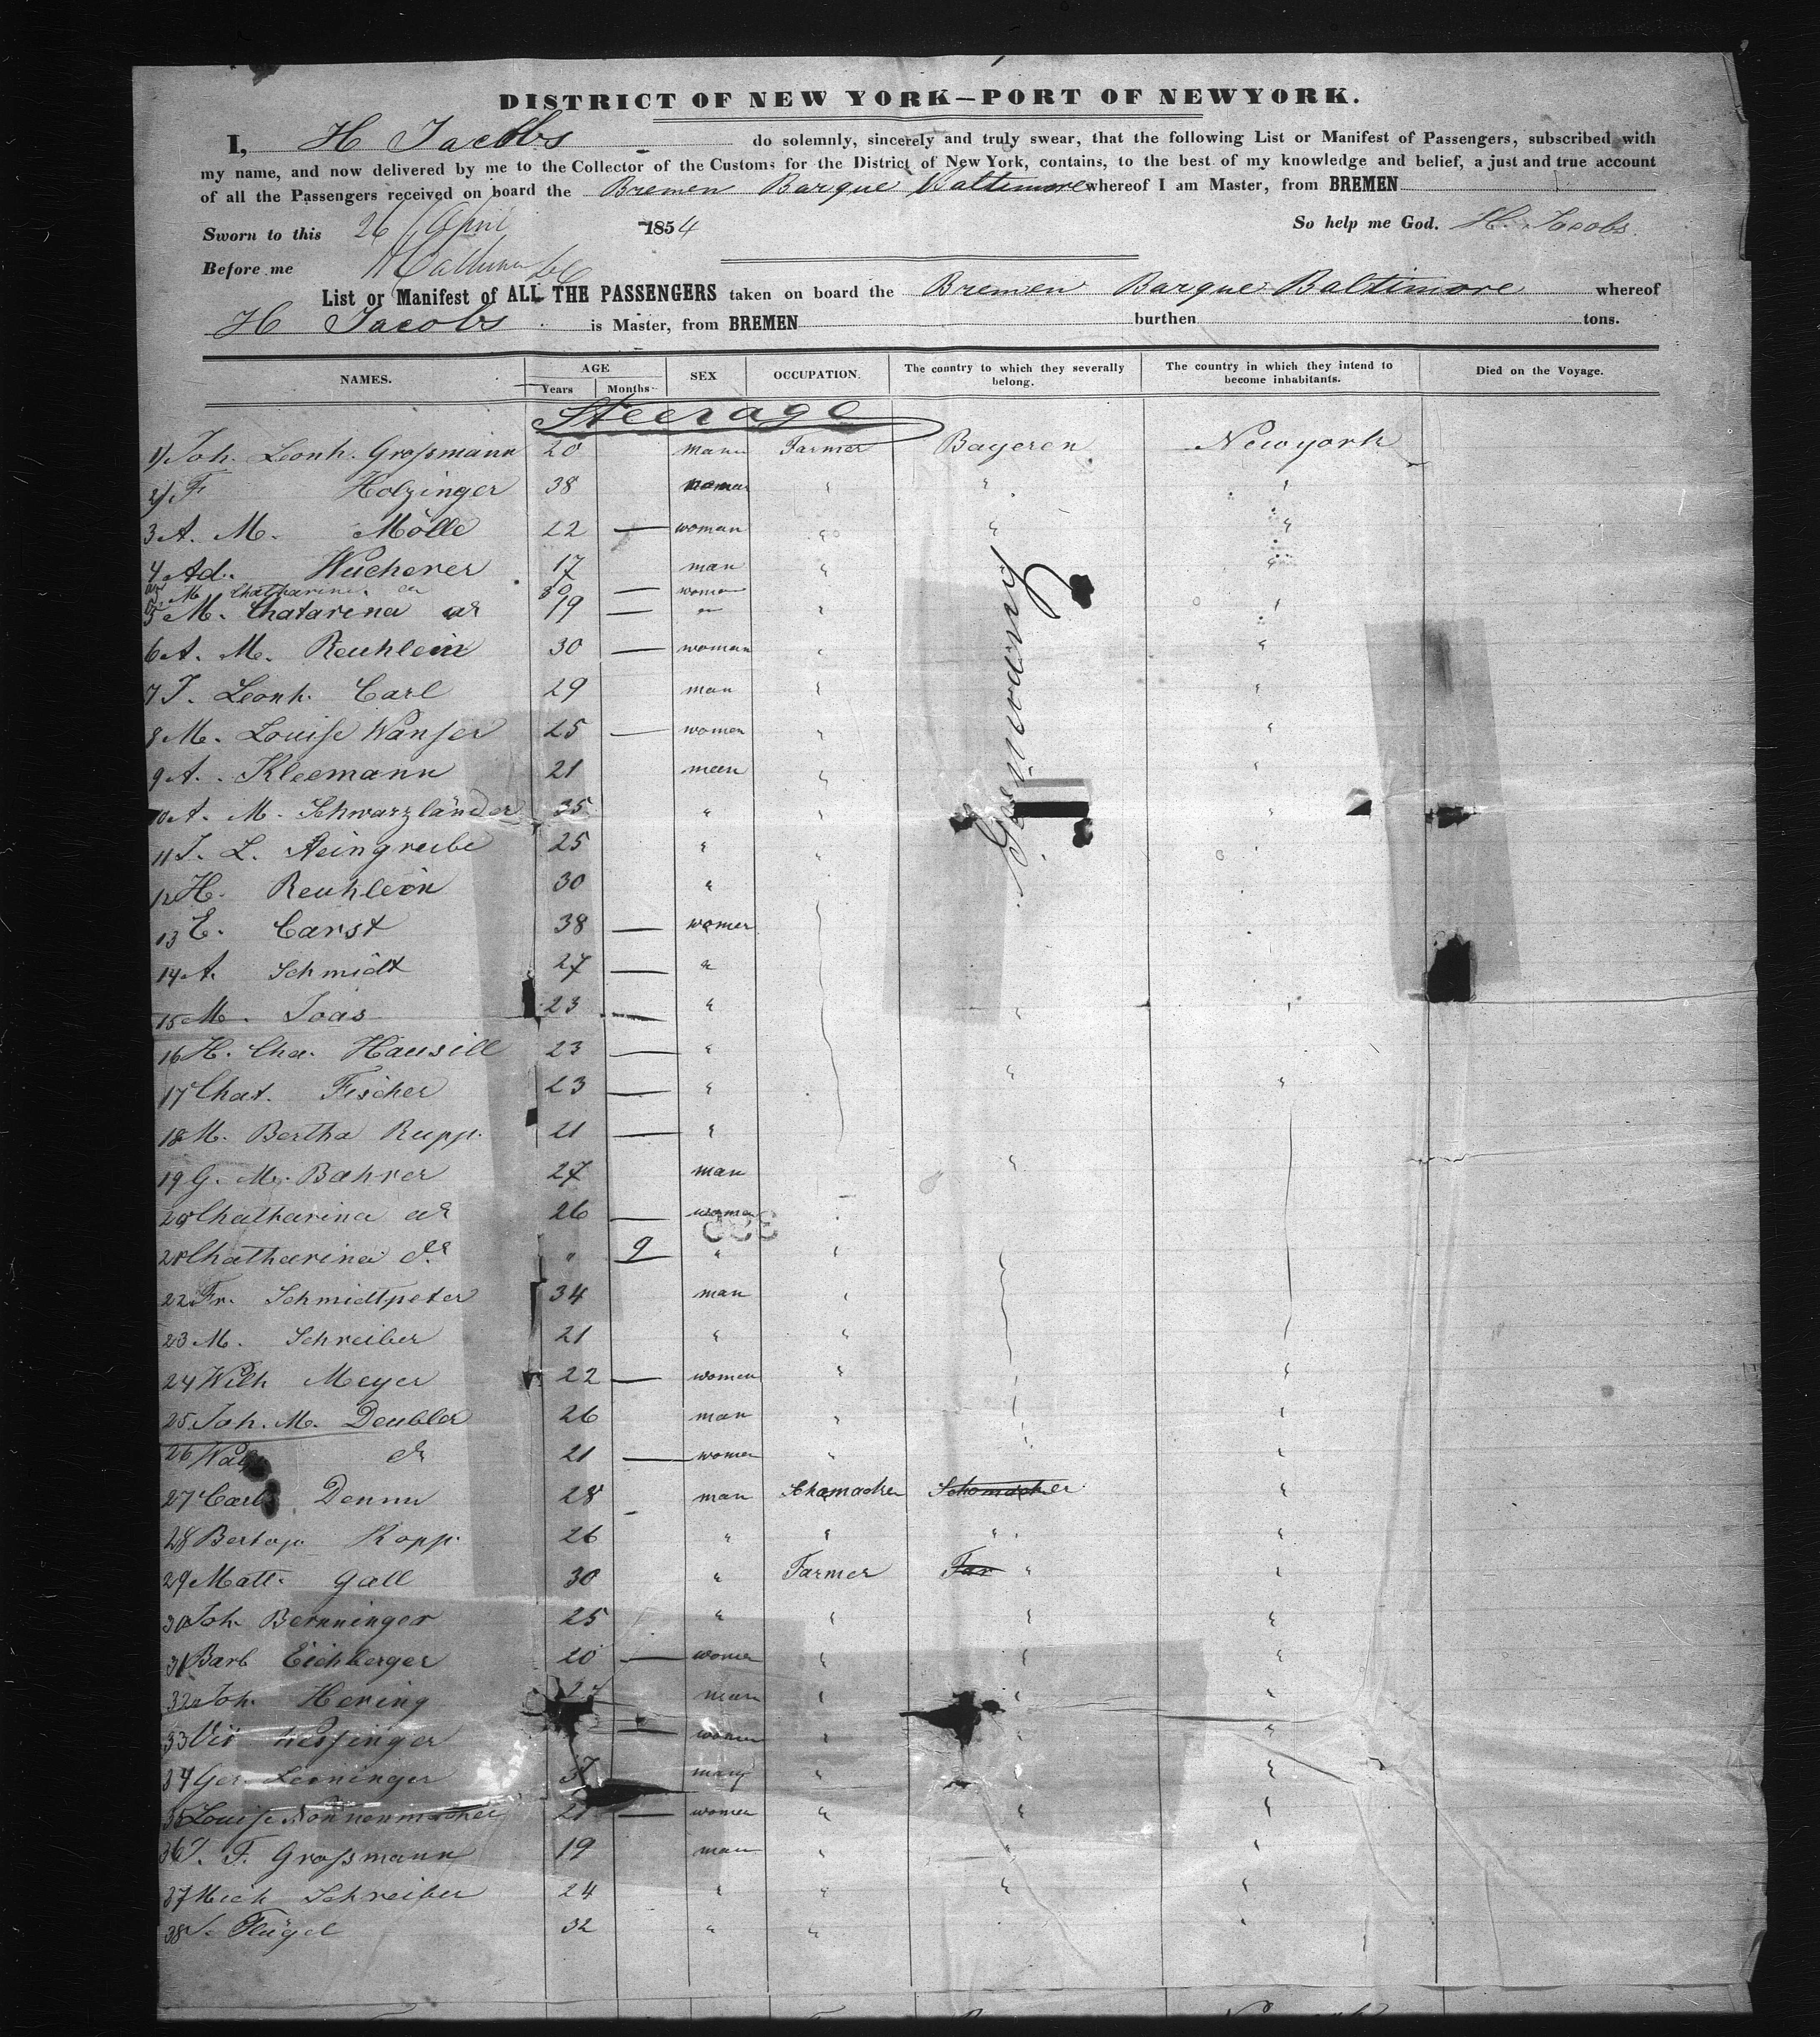 DISTRICT OF NEW YORK—PORT OF NEWYORK.
I, H Jacobs do solemnly, sincerely and truly swear, that the following List or Manifest of Passengers, subscribed with
my name, and now delivered by me to the Collector of the Customs for the District of New York, contains, to the best of my knowledge and belief, a just and true account
of all the Passengers received on board the Bremen Barque Baltimore whereof I am Master, from BREMEN
Sworn to this 26 April 1854 So help me God. H. Jacobs.
Before me
List or Manifest of ALL THE PASSENGERS taken on board the Bremen Barque Baltimore whereof
H Jacobs is Master, from BREMEN burthen tons.
NAMES. AGE Years Months SEX OCCUPATION. The country to which they severally belong. The country in which they intend to become inhabitants. Died on the Voyage.
Steerage
1 Joh. Leonh. Großmann 20 man Farmer Bayeren Newyork
2 F Holzinger 38 " " "
3 A. M. Mölle 22 — woman " " "
4 Ad. Wucherer 17 man " "
M. Chatharina 30 — woman
5 M. Chatarina 19 — " " "
6 A. M. Reuhlein 30 — woman " "
7 J. Leonh. Carl 29 man " "
8 M. Louise Wanser 25 — women " "
9 A. Kleemann 21 meen " "
10 A. M. Schwarzländer 35 " " "
11 J. L. 25 " " "
12 H. Reuhlein 30 "
13 E. Carst 38 — women
14 A. Schmidt 27 — "
15 M. Joas 23 — " " "
16 H. Cha. Hausill 23 — "
17 Chat. Fischer 23 — " " "
18 M. Bertha Rupp. 21 — "
19 G. M. Bahrer 27 man "
20 Chatharina 26 — women
21 Chatharina do " 9 " "
22 Fr. Schmidtpeter 34 man "
23 M. Schreiber 21 " "
24 Wilh Meyer 22 — women " "
25 Joh. M. Deubler 26 man " "
26 do 21 — women " "
27 Carl Dennu 28 man Schomacher "
28 Kopp. 26 " " " "
29 Matt. Gall 30 " Farmer " "
30 Joh Bernninger 25 " " " "
31 Barb Eichberger 20 — women " " "
32 Joh. Hering man " " "
33 — women " " "
34 Ger. Leoninger 37 man " "
35 Louise Nonnenmacher 21 — women " " "
36 J. F. Großmann 19 man " " "
37 Mich Schreiber 24 " " " "
38 J. Flügel 32 " " "
Germany